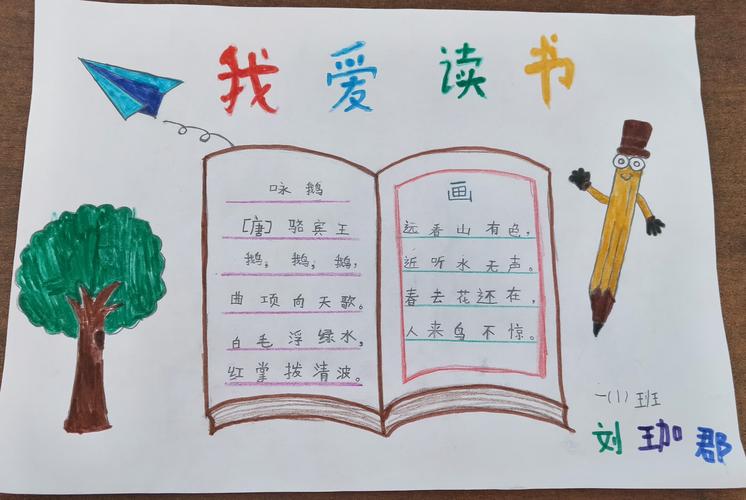 我爱读书
咏鹅
[唐] 骆宾王
鹅,鹅,鹅,
曲项向天歌。
白毛浮绿水,
红掌拨清波。
画
远看山有色,
近听水无声。
春去花还在,
人来鸟不惊。
一(1)班
刘珈郡